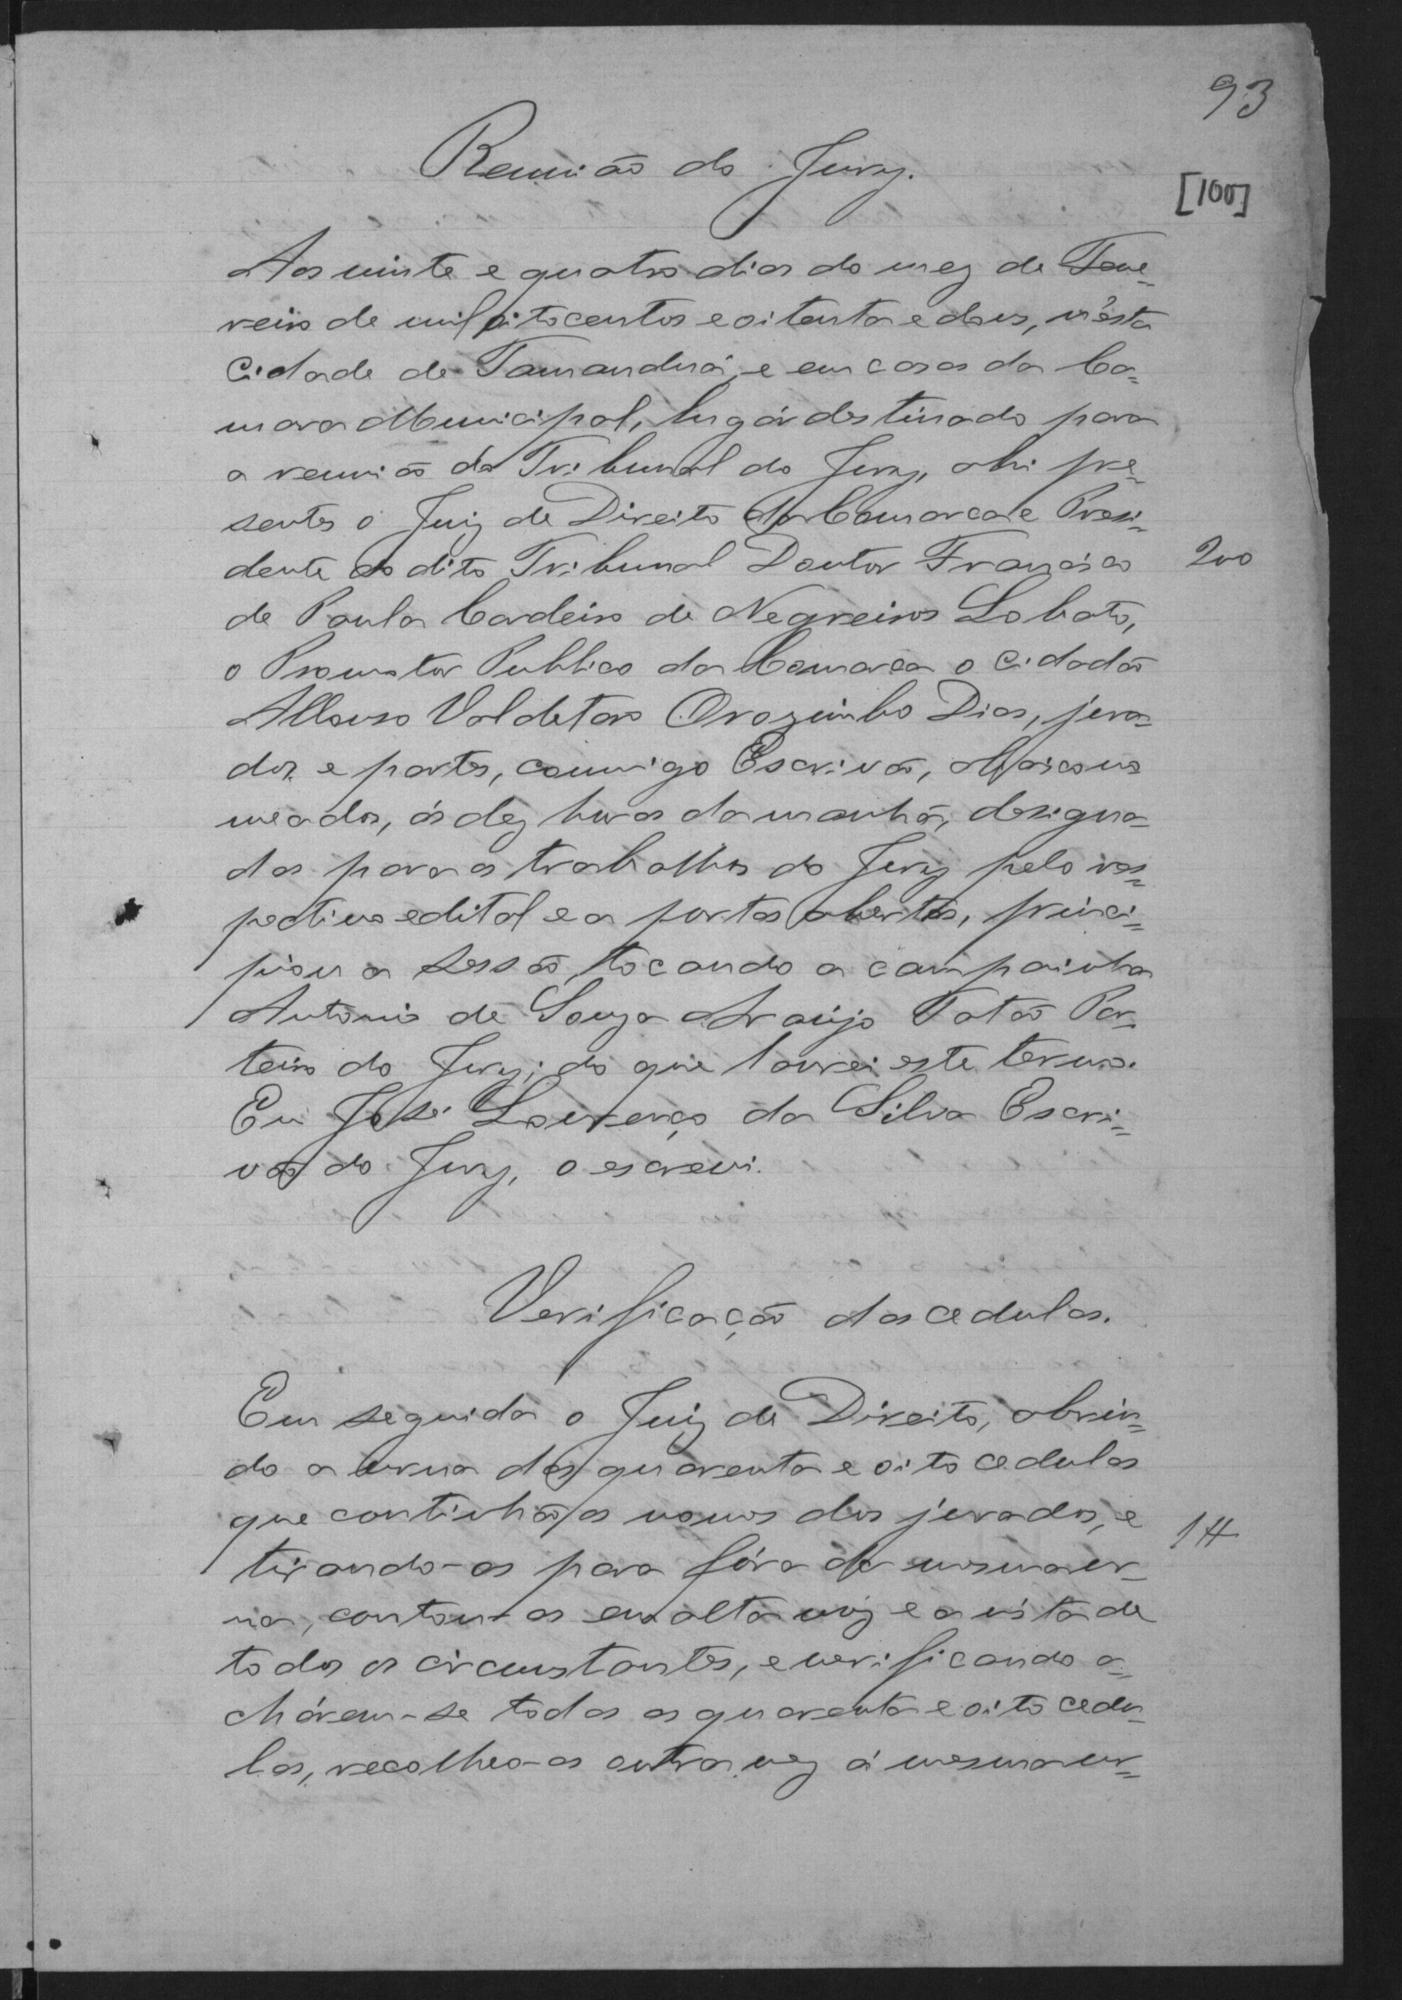 93
Reunião do Jury.
[100]
Aos vinte e quatro dias do mez de Feve=
reiro de mil oitocentos e oitenta e dous, n'esta
Cidade de Tamanduá, e em casas da Ca=
mara Municipal, lugár destinado para
a reunião do Tribunal do Jury, ahi pre=
sentes o Juiz de Direito da Comarca e Presi=
dente do dito Tribunal Doutor Francisco
200
de Paula Cordeiro de Negreiros Lobato,
o Promotor Publico da Comarca o Cidadão
Valdetaro Orozimbo Dias, jura=
dos e partes, commigo Escrivão, abaixo no
meados, ás dez horas da manhã, designa=
das para os trabalhos do Jury pelo res=
pectivo edital e a portas abertas, princi=
piou a sessão, tocando a campainha
Antonio de Souza Araujo Tatão Por=
teiro do Jury; do que lavrei este termo.
Eu José Lourenço da Silva Escri=
vão do Jury, o escrevi.
Verificação das cedulas.
Em seguida o Juiz de Direito, abrin=
do a urna das quarenta e oito cedulas
que continhão os nomes dos jurados, e
1#
tirando-as para fóra da mesma ur=
na, contou-as em alta voz e a vista de
todos os circunstantes, e verificando a=
chárem-se todas as quarenta e oito cedu=
las, recolheo-as outra vez á mesma ur=